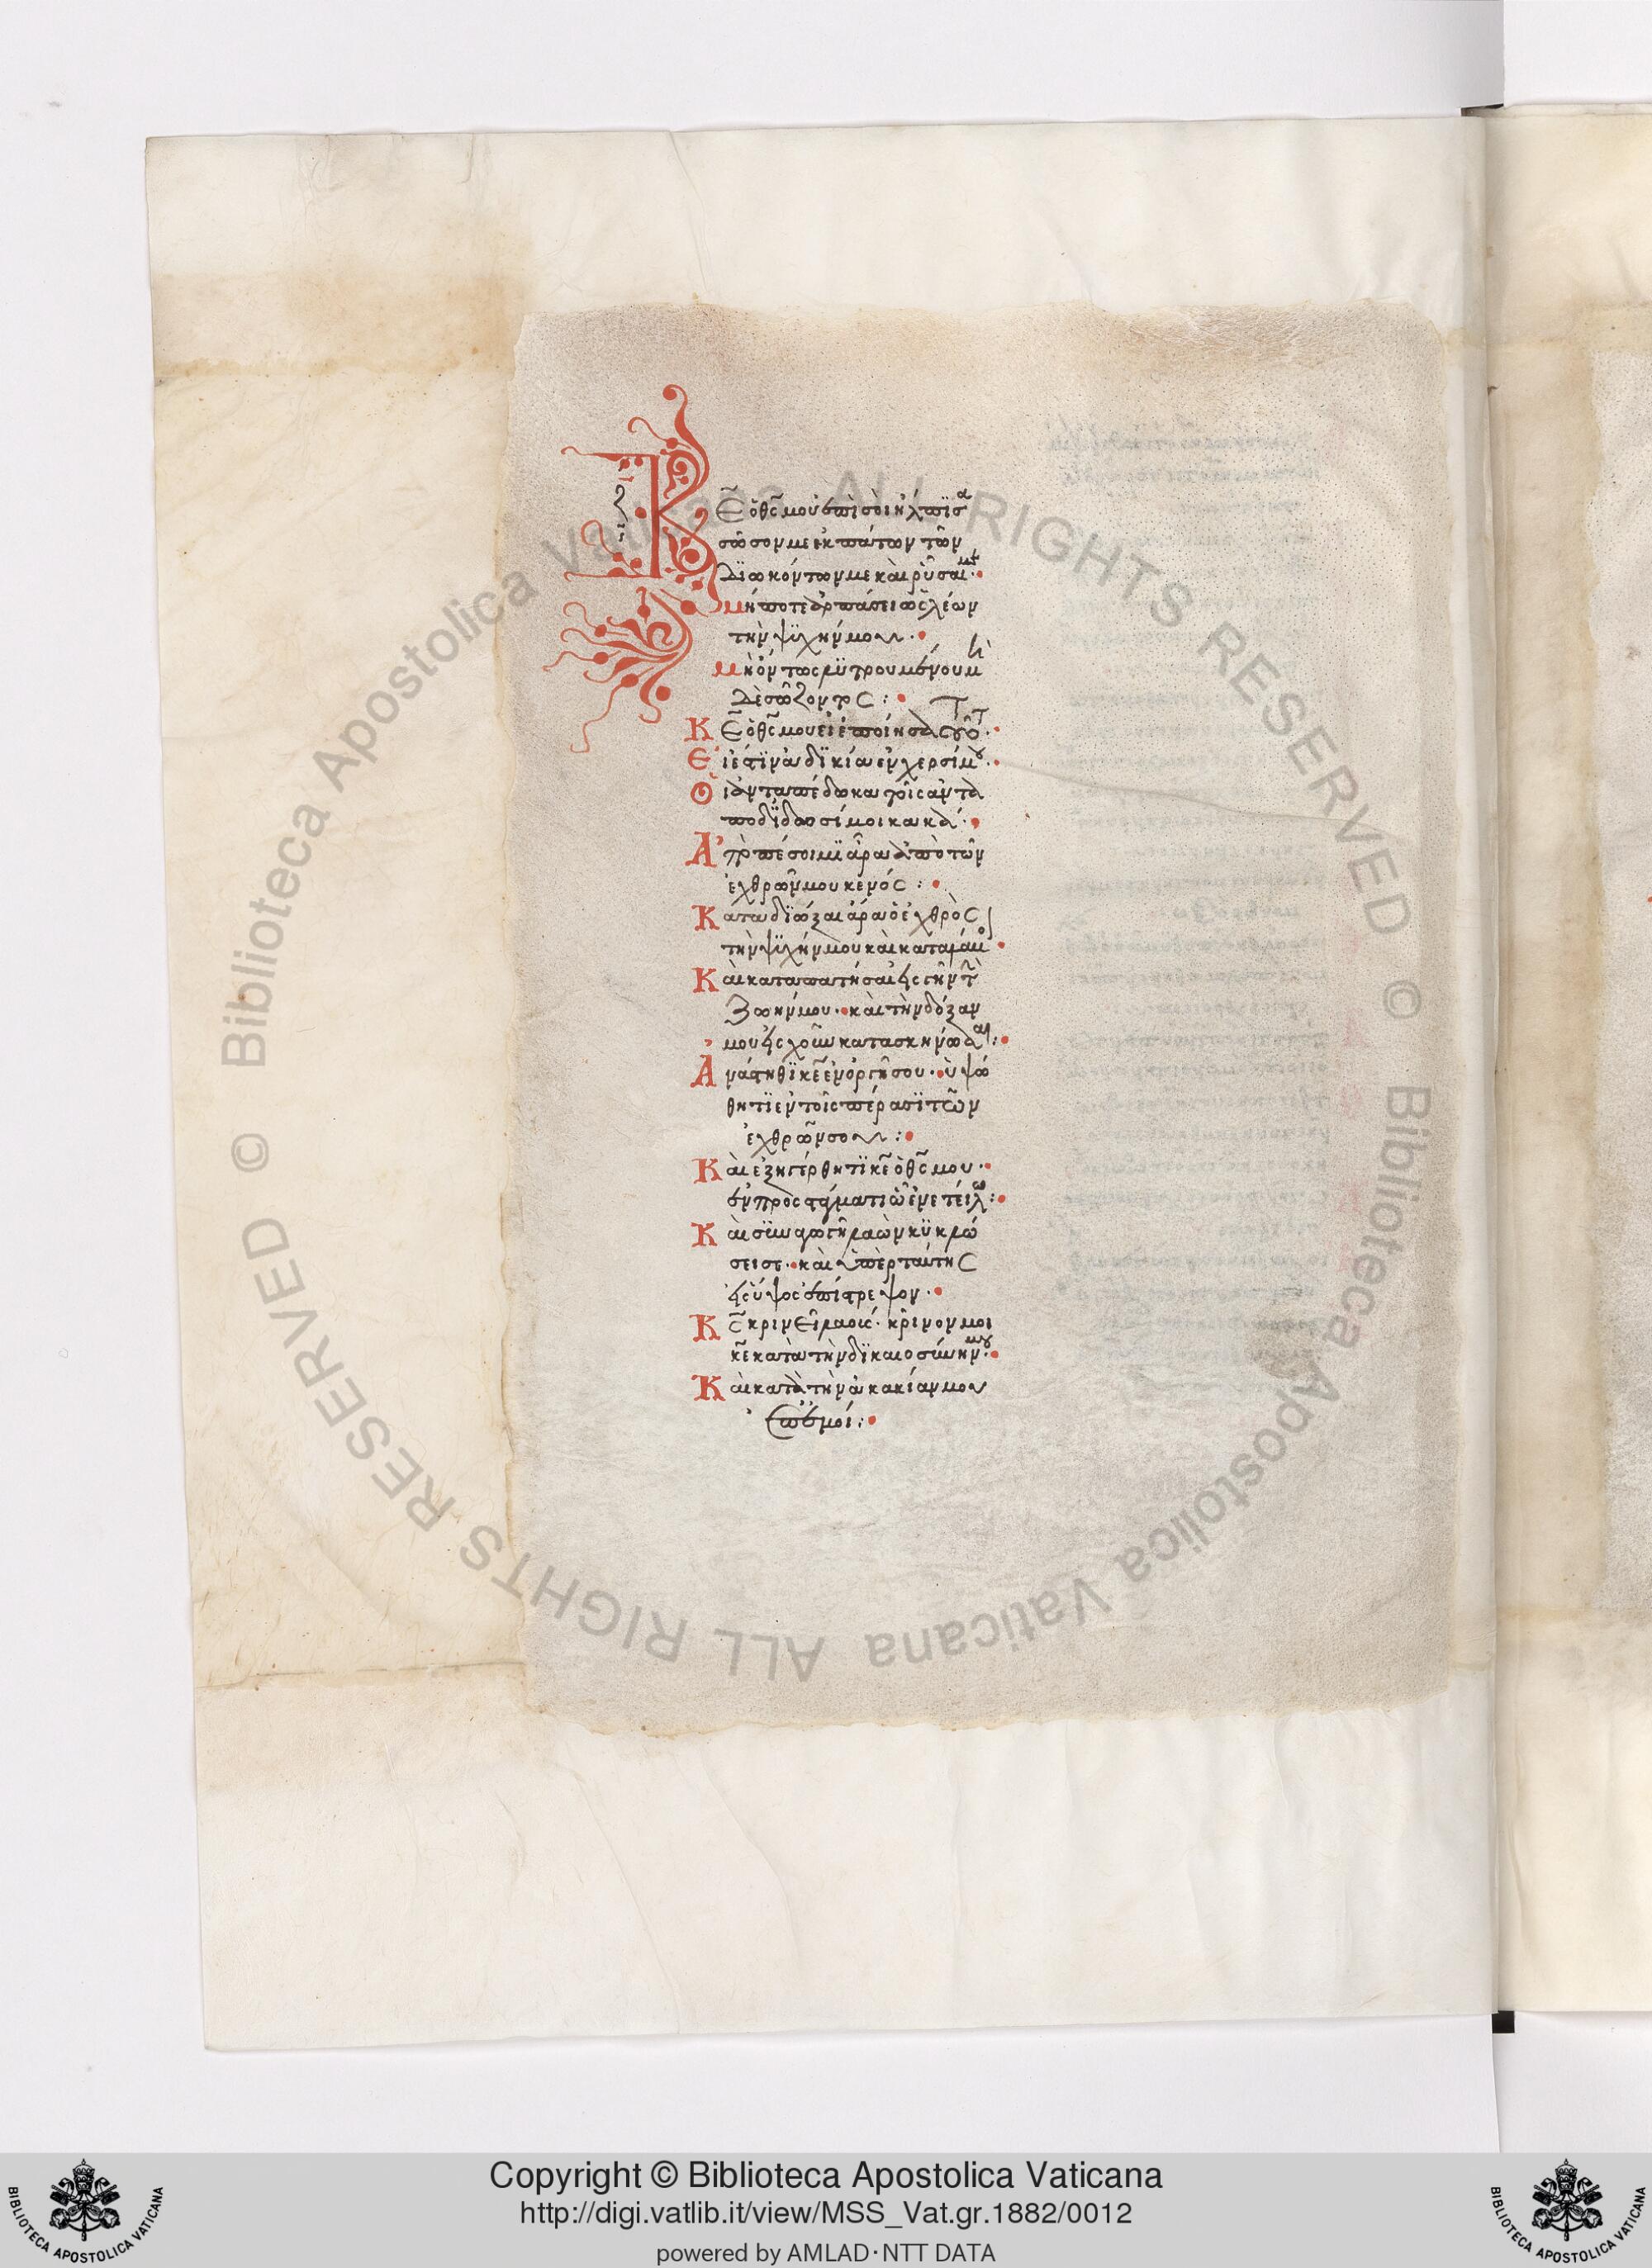 Κ̅Ε̅ ὁ θ̅ς̅ μου ἐπὶ σοὶ ἤλπϊσα
σῶσον με ἐκ πάντων τῶν
δϊωκόντων με καὶ ρῦσαι με·
μήποτε ἁρπάσει ὡς λέων
τὴν ψϊχήν μου·
μὴ ὄντως λϋτρουμένου μὴ
δὲ σώζοντος:
Κ̅Ε̅ ὁ θ̅ς̅ μου εἰ ἐποίησα τοῦτο·
Εἰ ἔστϊν ἀδϊκία ἐν χερσί μου·
Εἰ ἀνταπέδωκα τοῖς ἀντα
ποδϊδοῦσί μοι κακά·
Ἀποπέσοιμϊ ἄρα ἀπὸ τῶν
ἐχθρῶν μου κενός:
Καταδϊώξαι ἄρα ὁ ἐχθρὸς
τὴν ψϊχήν μου καὶ καταλάβοι·
Καὶ καταπατήσαι εἰς γῆν τὴν
ζωήν μου· καὶ τὴν δόξαν
μου εἰς χοῦν κατασκηνώσαι:
Ἀνάστηθϊ κ̅ε̅ ἐν ὀργῆ σου· ὑψώ
θητϊ ἐν τοῖς πέρασϊ τῶν
ἐχθρῶν σου:
Καὶ ἐξηγέρθητϊ κ̅ε̅ ὁ θ̅ς̅ μου·
ἐν προστάγματι ὧ ἐνετείλω:
Καὶ σϋναγωγὴ λαῶν κϋκλώ
σει σε· καὶ ὑπὲρ ταύτης
εἰς ὕψος ἐπίστρεψον·
Κ̅ς̅ κρινεῖ λαούς· κρῖνον μοι
κ̅ε̅ κατὰ τὴν δϊκαιοσύνην μου·
Καὶ κατὰ τὴν ἀκακίαν μου
ἐπ' ἐμοί:
© Biblioteca Apostolica Vaticana ALL RIGHTS RESERVED © Biblioteca Apostolica Vaticana ALL RIGHTS RESERVED
Copyright © Biblioteca Apostolica Vaticana
http://digi.vatlib.it/view/MSS_Vat.gr.1882/0012
powered by AMLAD·NTT DATA
BIBLIOTECA APOSTOLICA VATICANA
BIBLIOTECA APOSTOLICA VATICANA